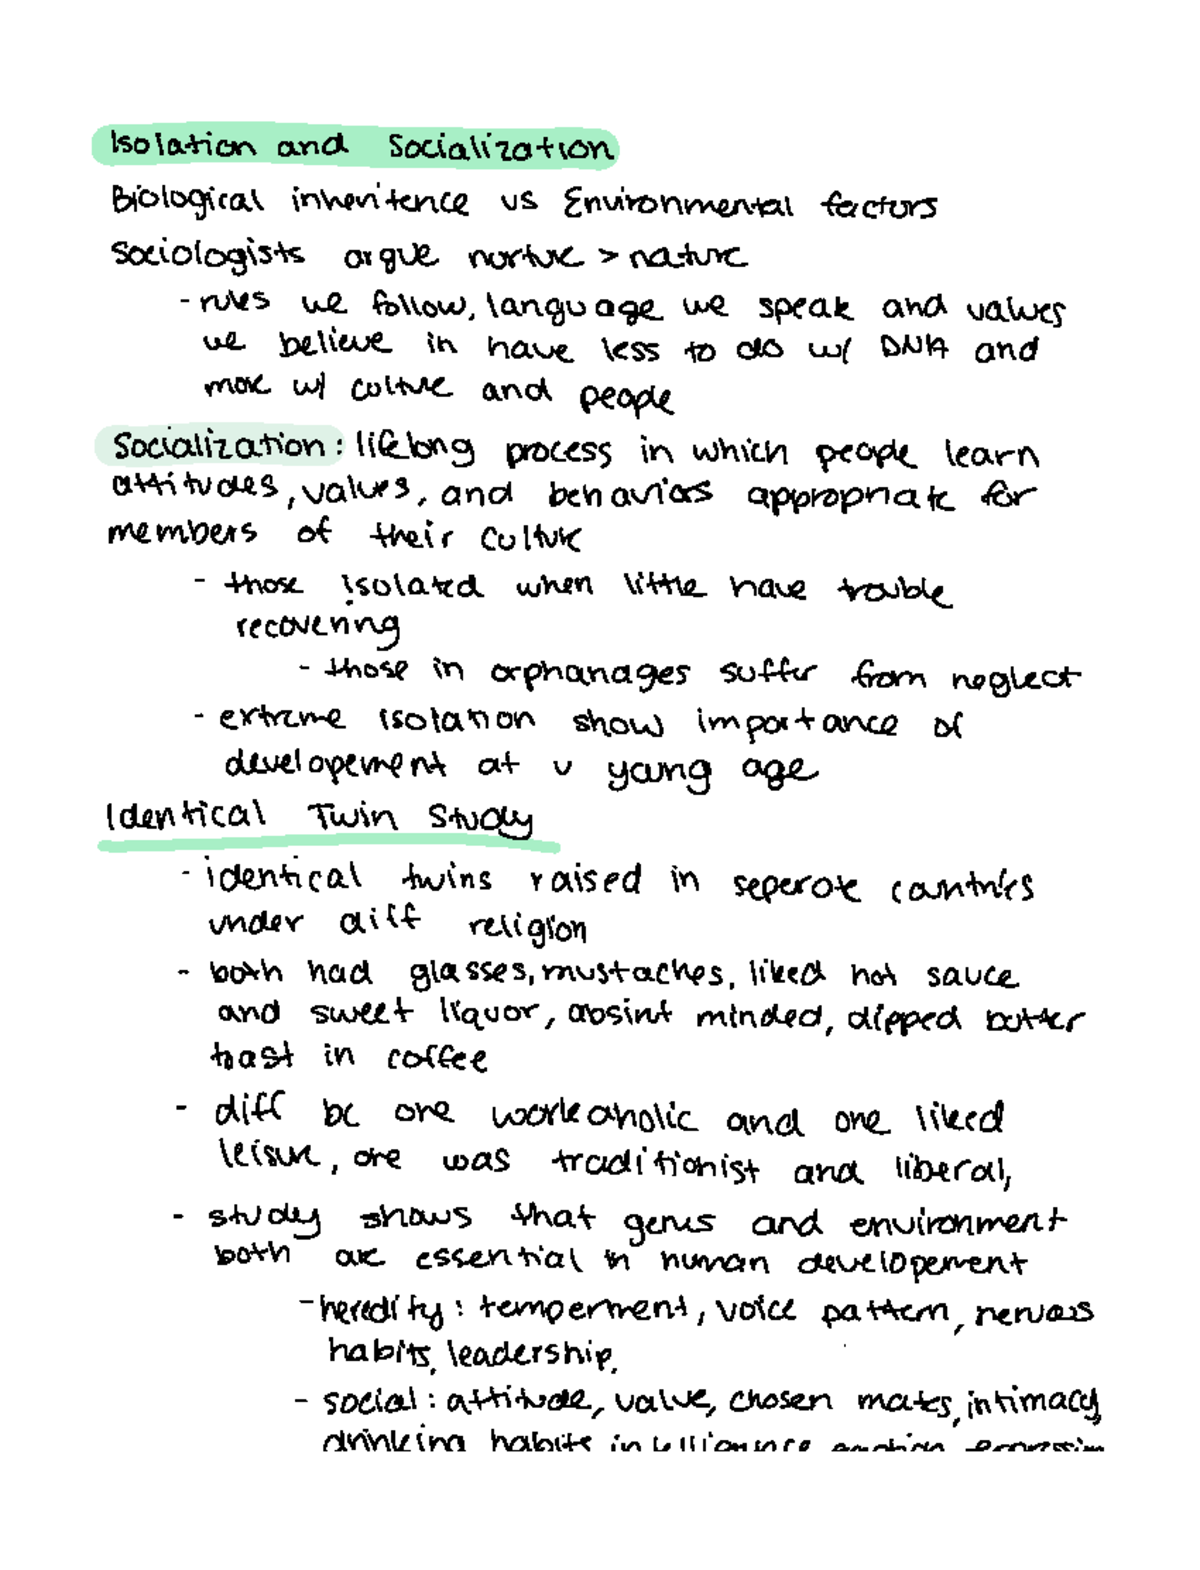 Isolation and Socialization
Biological inheritence vs Environmental factors
Sociologists argue nurture > nature
- rules we follow, language we speak and values
we believe in have less to do w/ DNA and
more w/ culture and people
Socialization: lifelong process in which people learn
attitudes, values, and behaviors appropriate for
members of their culture
- those isolated when little have trouble
recovering
- those in orphanages suffer from neglect
- extreme isolation show importance of
developement at v young age
Identical Twin Study
- identical twins raised in seperate countries
under diff religion
- both had glasses, mustaches, liked hot sauce
and sweet liquor, absint minded, dipped butter
toast in coffee
- diff bc one workaholic and one liked
leisure, one was traditionist and liberal,
- study shows that genes and environment
both are essential in human developement
- heredity: temperment, voice pattern, nervous
habits, leadership,
- social: attitude, value, chosen mates, intimacy,
drinking habits intelligence emotion expression